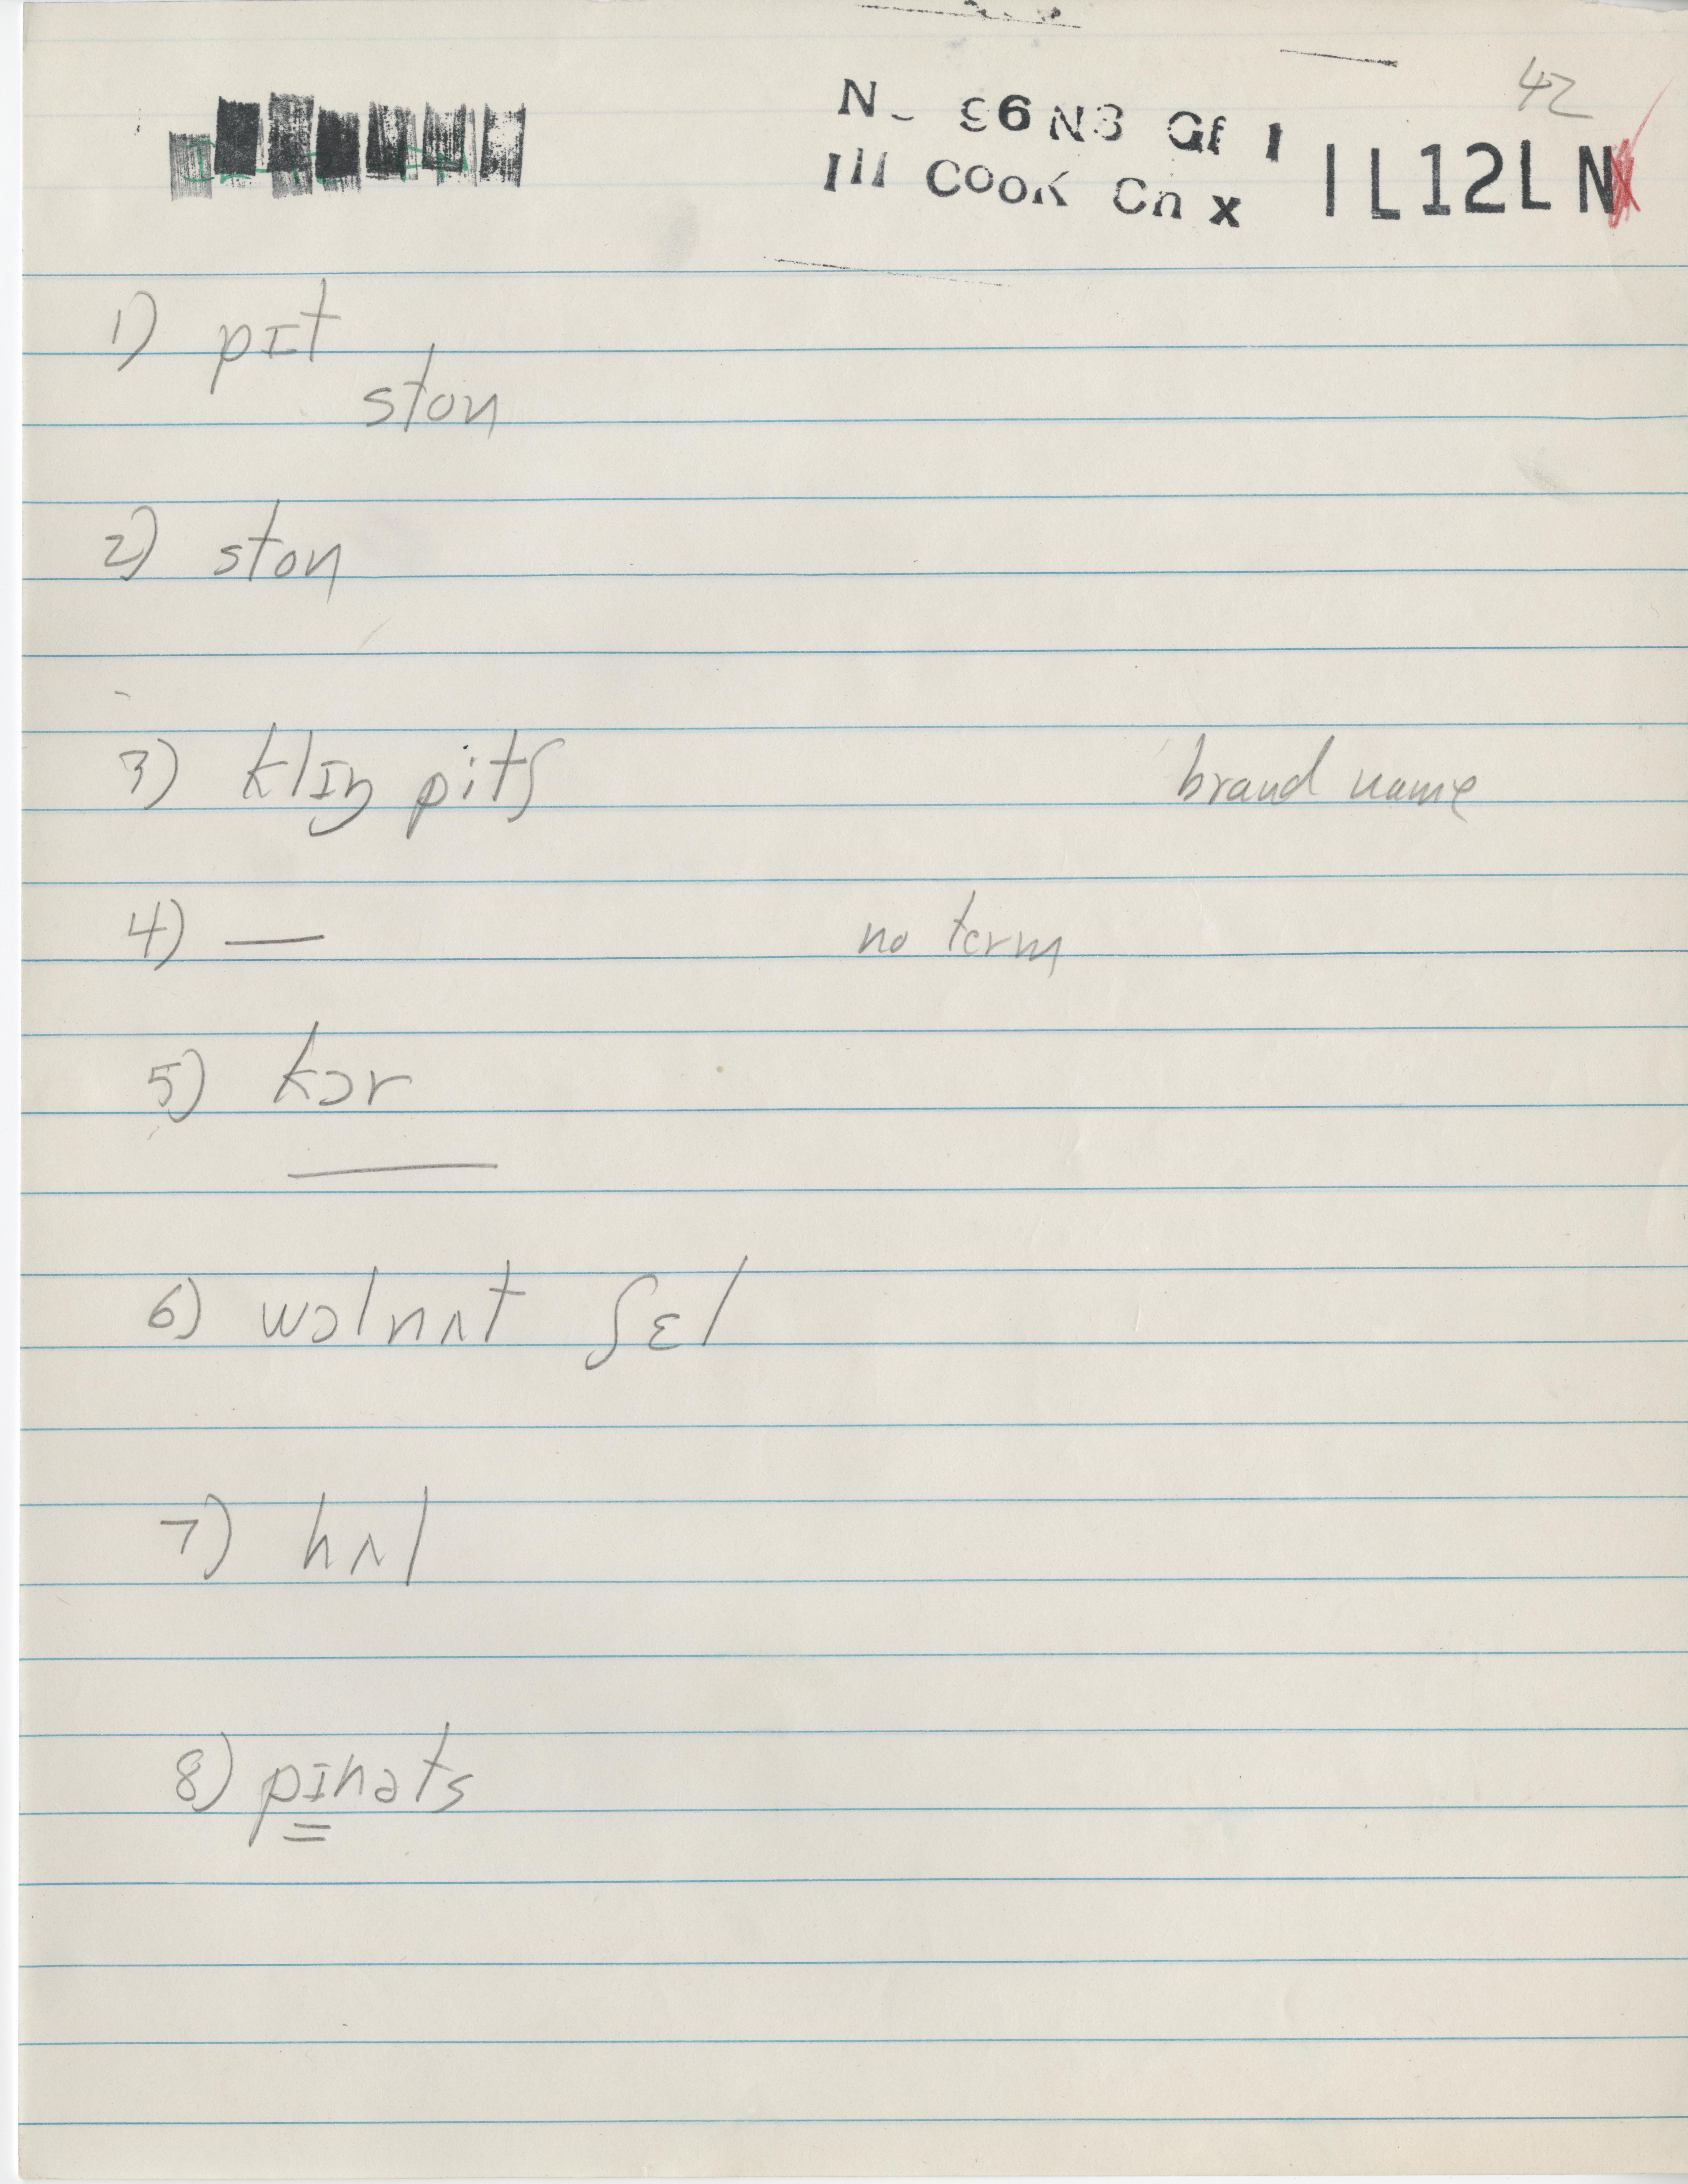 42
N- 96 N3 Gf 1
Ill Cook Cn x IL12LN
1) pɪt
ston
2) ston
3) klɪŋ pitʃ brand name
4) — no term
5) kɔr
6) wɔlnʌt ʃɛl
7) hʌl
8) pɪnəts